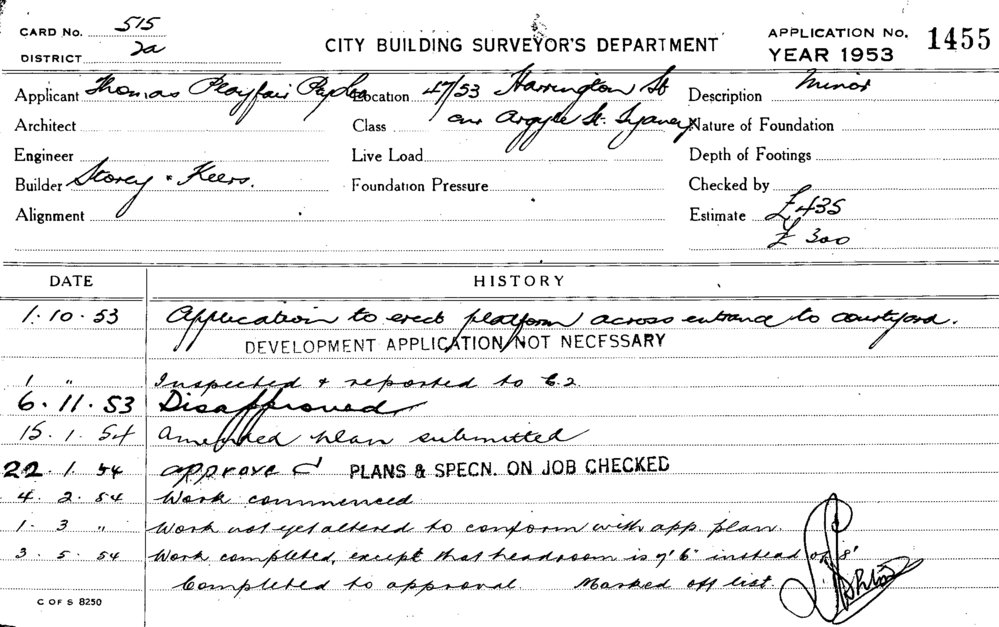 CARD No. 515
DISTRICT 2a
CITY BUILDING SURVEYOR'S DEPARTMENT
APPLICATION No. 1455
YEAR 1953
Applicant Thomas Playfair Pty Ltd
Location 47/53 Harrington St
Description Minor
Architect
Class cnr Argyle St. Sydney
Nature of Foundation
Engineer
Live Load
Depth of Footings
Builder Storey & Keers.
Foundation Pressure
Checked by
Alignment
Estimate £435
£300
DATE HISTORY
1.10.53 Application to erect platform across entrance to courtyard.
DEVELOPMENT APPLICATION NOT NECESSARY
1 " Inspected & reported to E.2
6.11.53 Disapproved
15.1.54 Amended plan submitted
22.1.54 approved PLANS & SPECN. ON JOB CHECKED
4.2.54 Work commenced
1.3 " Work not yet altered to conform with app. plan.
3.5.54 Work completed, except that headroom is 7'6" instead of 8'
Completed to approval. Marked off list.
C OF S 8250